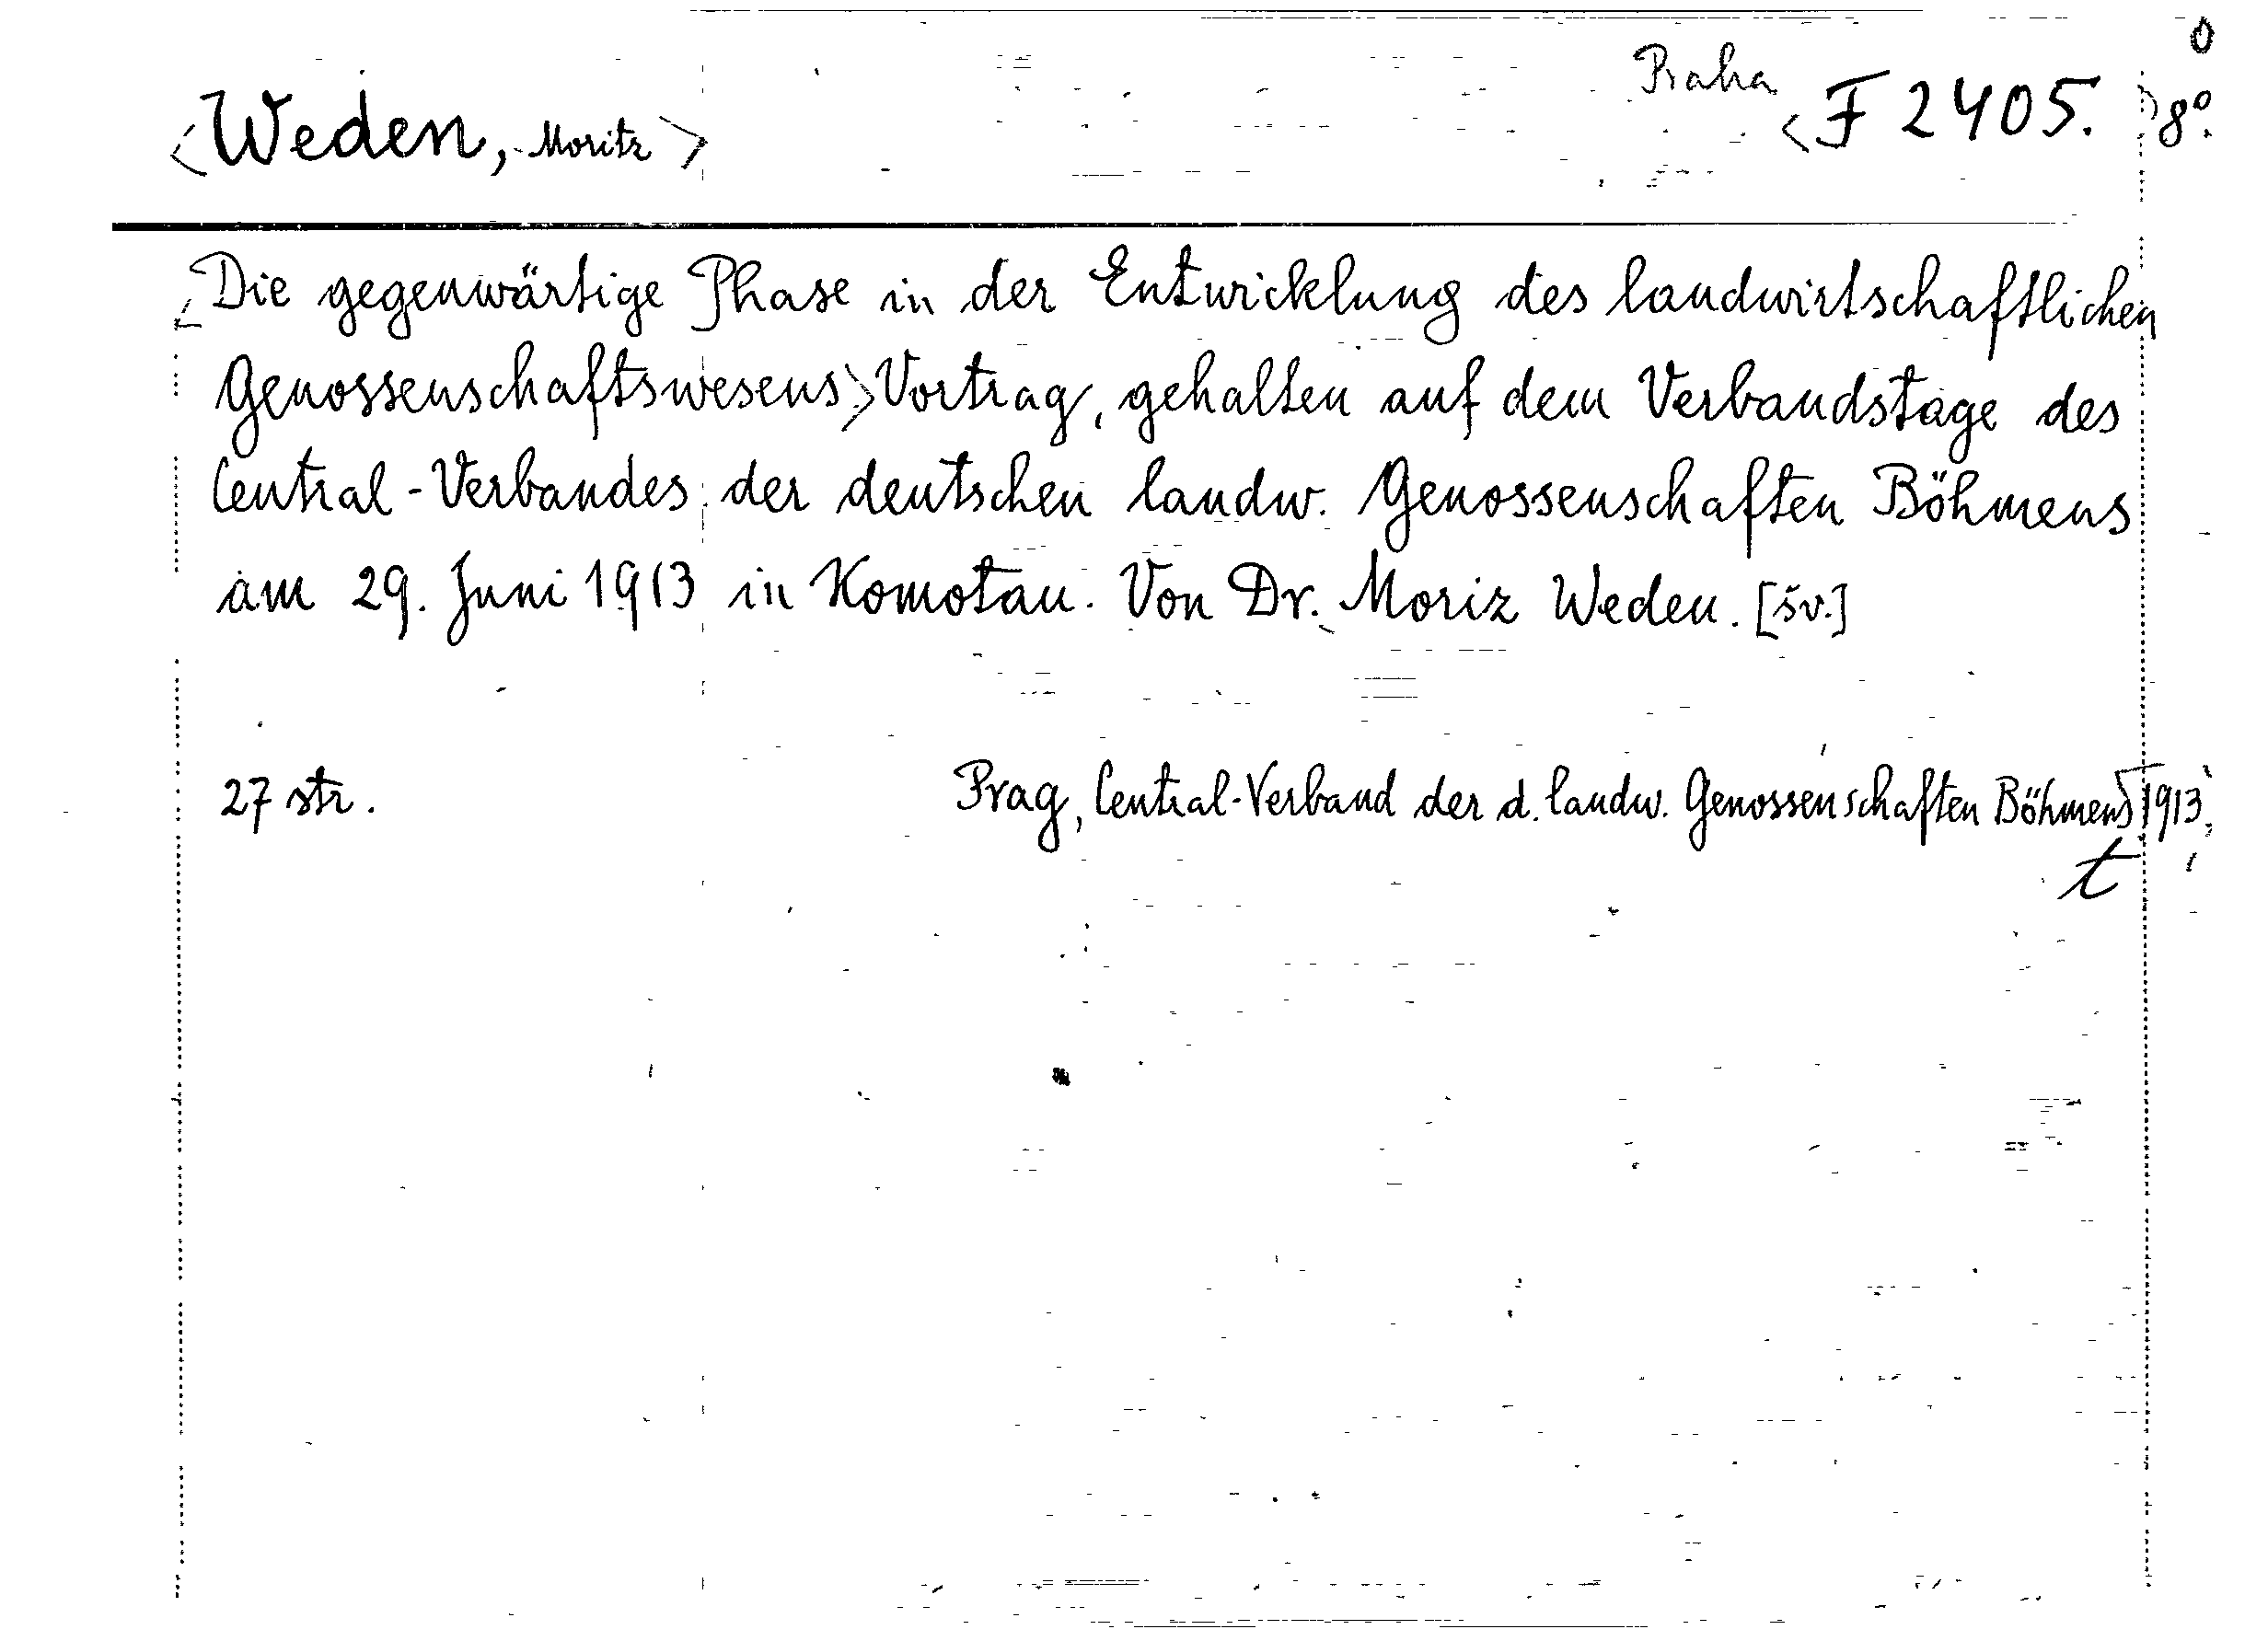 0
Praha
<Weden, Moritz> <F 2405. >8°.
<Die gegenwärtige Phase in der Entwicklung des landwirtschaftlichen
Genossenschaftswesens> Vortrag, gehalten auf dem Verbandstage des
Central-Verbandes der deutschen landw. Genossenschaften Böhmens
am 29. Juni 1913 in Komotau. Von Dr. Moriz Weden. [šv.]
27 str. Prag, Central-Verband der d. landw. Genossenschaften Böhmens 1913
t